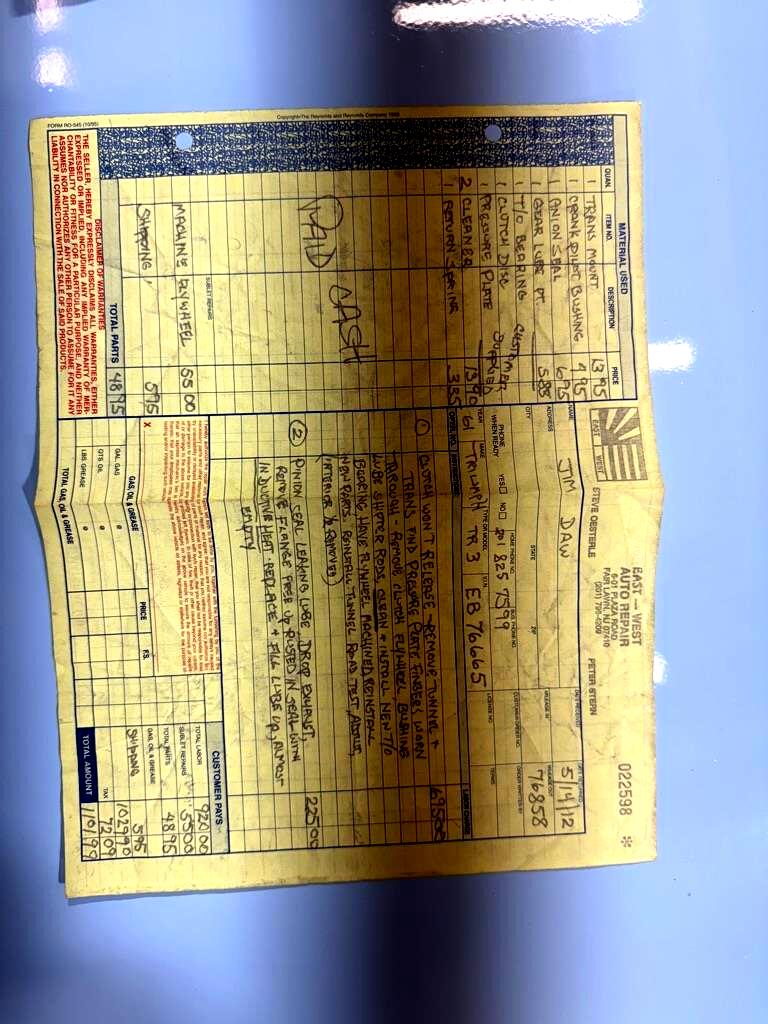 FORM RO-545 (10/95)
Copyright-The Reynolds and Reynolds Company 1995
EAST WEST
STEVE OESTERLE
EAST — WEST
AUTO REPAIR
6-01 PLAZA ROAD
FAIR LAWN, NJ 07410
(201) 796-6209
PETER STERN
022598 *
MATERIAL USED
QUAN. ITEM NO. DESCRIPTION PRICE
1 TRANS MOUNT 13 95
1 CRANK PILOT BUSHING 4 95
1 PINION SEAL 6 95
1 GEAR LUBE PT. 5 85
1 T/O BEARING CUSTOMER
1 CLUTCH DISC SUPPLIED
1 PRESSURE PLATE
2 CLEANER 13 90
1 RETURN SPRING 3 35
PAID CASH
SUBLET REPAIRS
MACHINE FLYWHEEL 55 00
SHIPPING 5 95
TOTAL PARTS 48 95
DISCLAIMER OF WARRANTIES
THE SELLER, HEREBY EXPRESSLY DISCLAIMS ALL WARRANTIES, EITHER
EXPRESSED OR IMPLIED, INCLUDING ANY IMPLIED WARRANTY OF MER-
CHANTABILITY OR FITNESS FOR A PARTICULAR PURPOSE, AND NEITHER
ASSUMES NOR AUTHORIZES ANY OTHER PERSON TO ASSUME FOR IT ANY
LIABILITY IN CONNECTION WITH THE SALE OF SAID PRODUCTS.
NAME JIM DAW DATE RECEIVED 5/14/12
ADDRESS MILEAGE IN 76858
CITY STATE ZIP CUSTOMER ORDER NO. ORDER WRITTEN BY
PHONE WHEN READY YES NO HOME PHONE NO. 201 825 7599 BUS. PHONE NO.
YEAR 61 MAKE TRIUMPH TYPE OR MODEL TR 3 EB 76665 LICENSE NO. TERMS
OPER. NO. INSTRUCTIONS LABOR CHARGE
① CLUTCH WON'T RELEASE - REMOVE TUNNEL + 695 00
TRANS FIND PRESSURE PLATE FINGERS WORN
THROUGH - REMOVE CLUTCH FLYWHEEL BUSHING
LUBE SHIFTER RODS, CLEAN + INSTALL NEW T/O
BEARING HAVE FLYWHEEL MACHINED REINSTALL
NEW PARTS. REINSTALL TUNNEL ROAD TEST,
(INTERIOR REMOVED)
② PINION SEAL LEAKING LUBE DROP EXHAUST, 225 00
REMOVE FLANGE FREE UP RUSTED IN SEAL WITH
INDUCTIVE HEAT REPLACE + FILL LUBE UP, ALMOST
EMPTY
X
GAS, OIL & GREASE PRICE
GAL. GAS @
QTS. OIL @
LBS. GREASE @
TOTAL GAS, OIL & GREASE
CUSTOMER PAYS
TOTAL LABOR 920 00
SUBLET REPAIRS 55 00
TOTAL PARTS 48 95
GAS, OIL & GREASE
SHIPPING 5 95
1029 90
TAX 72 09
TOTAL AMOUNT 1101 99